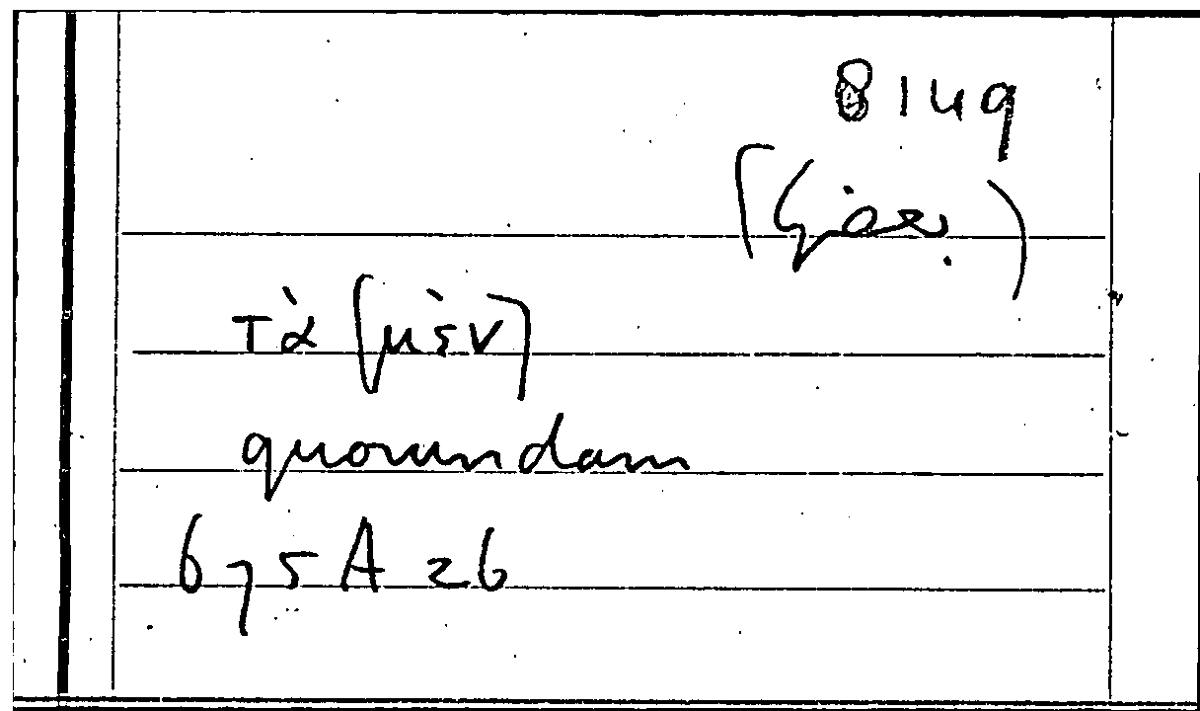 8149
τὰ [μὲν]
quorundam
675 A 26